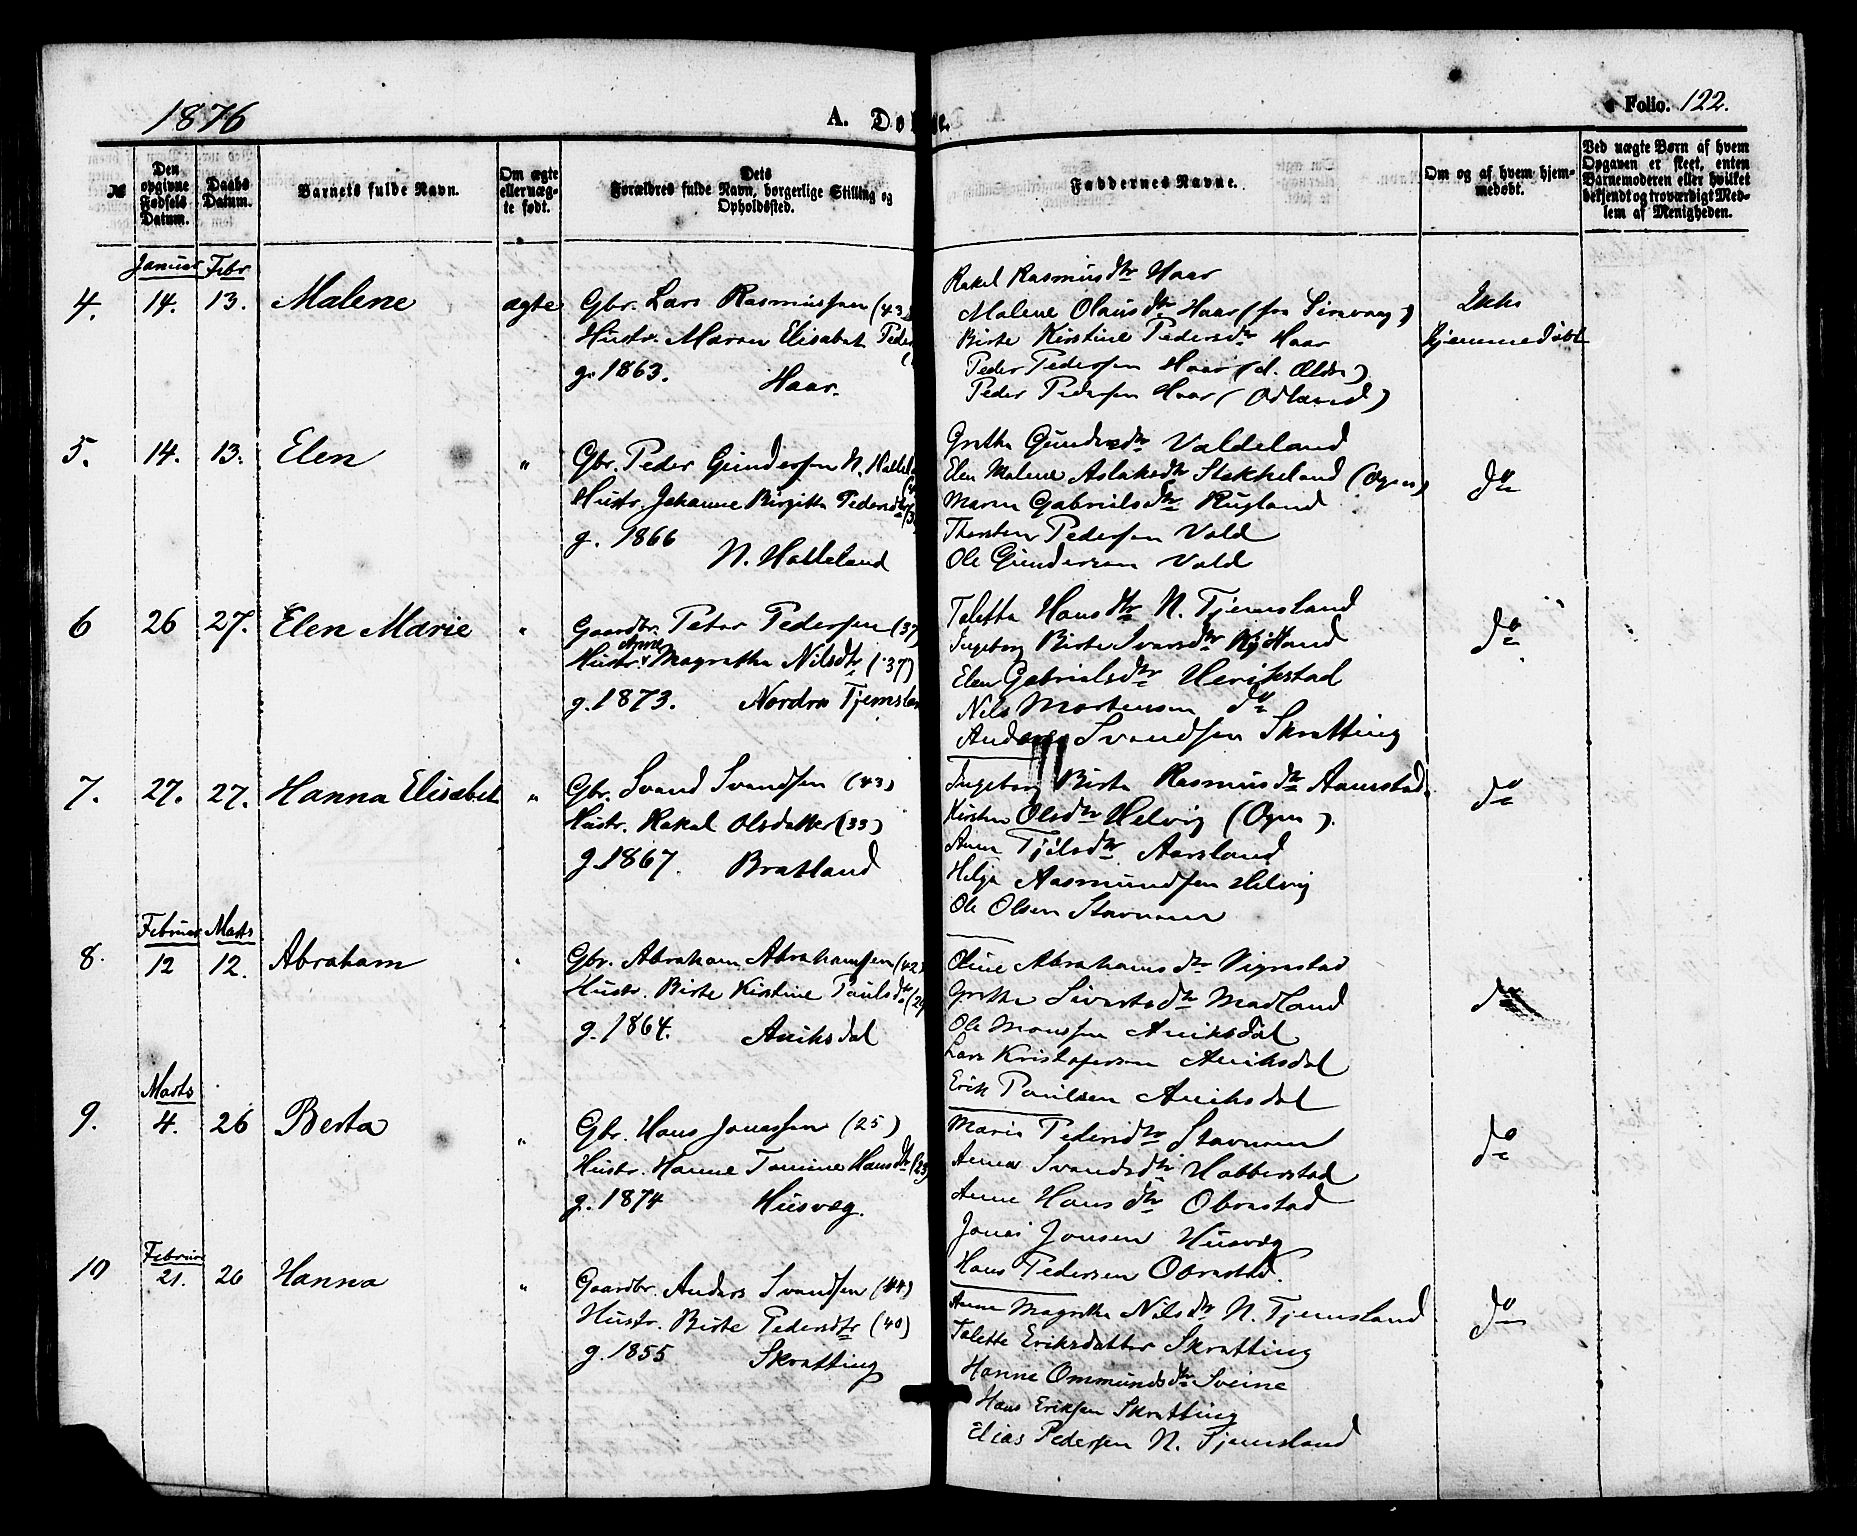 1876
A. Dobte.
Folio. 122.
№
Den opgivne Fødsels Datum.
Daabs Datum.
Barnets fulde Navn.
Om ægte eller uægte født.
Dets Forældres fulde Navn, borgerlige Stilling og Opholdssted.
Faddernes Navne.
Om og af hvem hjemmedøbt.
Ved uægte Børn af hvem Opgaven er skeet, enten Barnemoderen eller hvilket bekjendt og troværdigt Medlem af Menigheden.
Januar Febr
4. 14. 13. Malene ægte
Gbr. Lars Rasmussen (43)
Hustr. Maren Elisabet Peder
g. 1863. Haar.
Rakel Rasmusdtr Haar
Malene Olausdtr Haar (fra Sirevaag)
Birte Kirstine Pedersdtr Haar
Peder Pedersen Haar (d. Ældre)
Peder Pedersen Haar (Odland)
Ikke
hjemmedøbt
5. 14. 13. Elen "
Gbr. Peder Gundersen N. Hallel
Hustr. Johanne Birgitte Pedersdtr
g. 1866
N. Halleland
Grethe Gundersdtr Valdeland
Elen Malene Aslaksdtr Stokkeland (Ogne)
Maren Gabrielsdtr Rugland
Thorsten Pedersen Vold
Ole Gundersen Vold
do
6 26 27. Elen Marie "
Gaardbr. Peter Pedersen (37)
Hustr. Anne Magrethe Nilsdtr (37)
g. 1873. Nordre Tjemslan
Talette Hansdtr N. Tjemsland
Ingeborg Birte Ivarsdtr
Elen Gabrielsdtr Herikstad
Nils Mortensen do
Anders Svendsen Skratting
do
7. 27. 27. Hanna Elisabet "
Gbr. Svend Svendsen (43)
Hustr. Rakel Olsdatter (33)
g. 1867. Bratland
Ingeborg Birte Rasmusdtr
Kirsten Olsdtr Helvig (Ogne).
Anne Aarsland
Helge Aasmundsen Helvig
Ole Olsen Stavnem
do
Februar Marts
8. 12 12. Abraham "
Gbr. Abraham Abrahamsen (42)
Hustr. Birte Kirstine Paulsdtr (29
g. 1864. Aniksdal
Oline Abrahamsdtr Vigrestad
Grethe Sivertsdtr Madland
Ole Monssen Aniksdal
Lars Kristofersen Aniksdal
Erik Paulsen Aniksdal
do
Marts
9. 4. 26 Berta "
Gbr. Hans Jonassen (25)
Hustr. Hanne Tomine Hansdtr (23)
g. 1874 Husveg.
Marie Pedersdtr Stavnem
Anna Svendsdtr Hobberstad
Anne Hansdtr Obrestad
Jonas Jonsen Husveg
Hans Pedersen Obrestad.
do
Februar
10 21. 26 Hanna "
Gaardbr. Anders Svendsen (44)
Hustr. Birte Pedersdtr (40)
g. 1855 Skratting
Anne Magrethe Nilsdtr N. Tjemsland
Talette Eriksdatter Skratting
Hanne Ommundsdtr Sveine
Hans Eriksen Skratting
Elias Pedersen N. Tjemsland
do